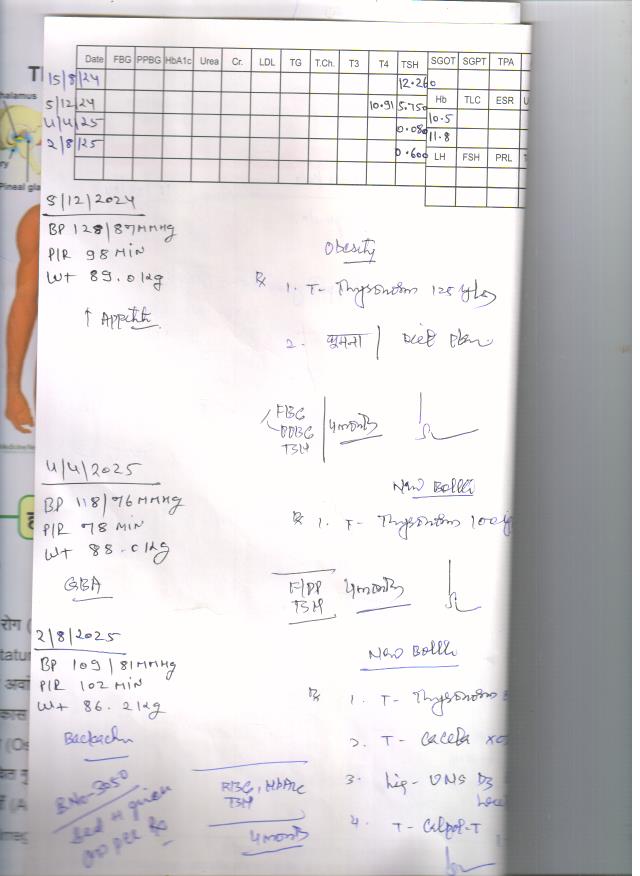 Date FBG PPBG HbA1c Urea Cr. LDL TG T.Ch. T3 T4 TSH SGOT SGPT TPA
15/8/24 12.260
Hb TLC ESR
5/12/24 10.91 5.750
10.5
4/4/25 0.080
11.8
2/8/25 0.600
LH FSH PRL
5/12/2024
BP 128/87 MMHg
P/R 98 MIN
Wt 89.0 kg
↑ Appetite
Obesity
Rx 1. T- Thyronorm 125
2. घूमना / Diet Plan
FBG
PPBG
TSH
4 months
4/4/2025
BP 118/76 MMHg
P/R 78 MIN
Wt 88.0 kg
GBA
New Bottle
Rx 1. T- Thyronorm 100
F/PP
TSH
4 months
2/8/2025
BP 109/81 MMHg
P/R 102 MIN
Wt 86.2 kg
Backache
New Bottle
Rx 1. T- Thyronorm
2. T-
3. D3
4. T- Calpol-T
RBG, HbA1c
TSH
4 months
BNo-3050
given
as per Rx
thalamus
Pineal gla
रोग